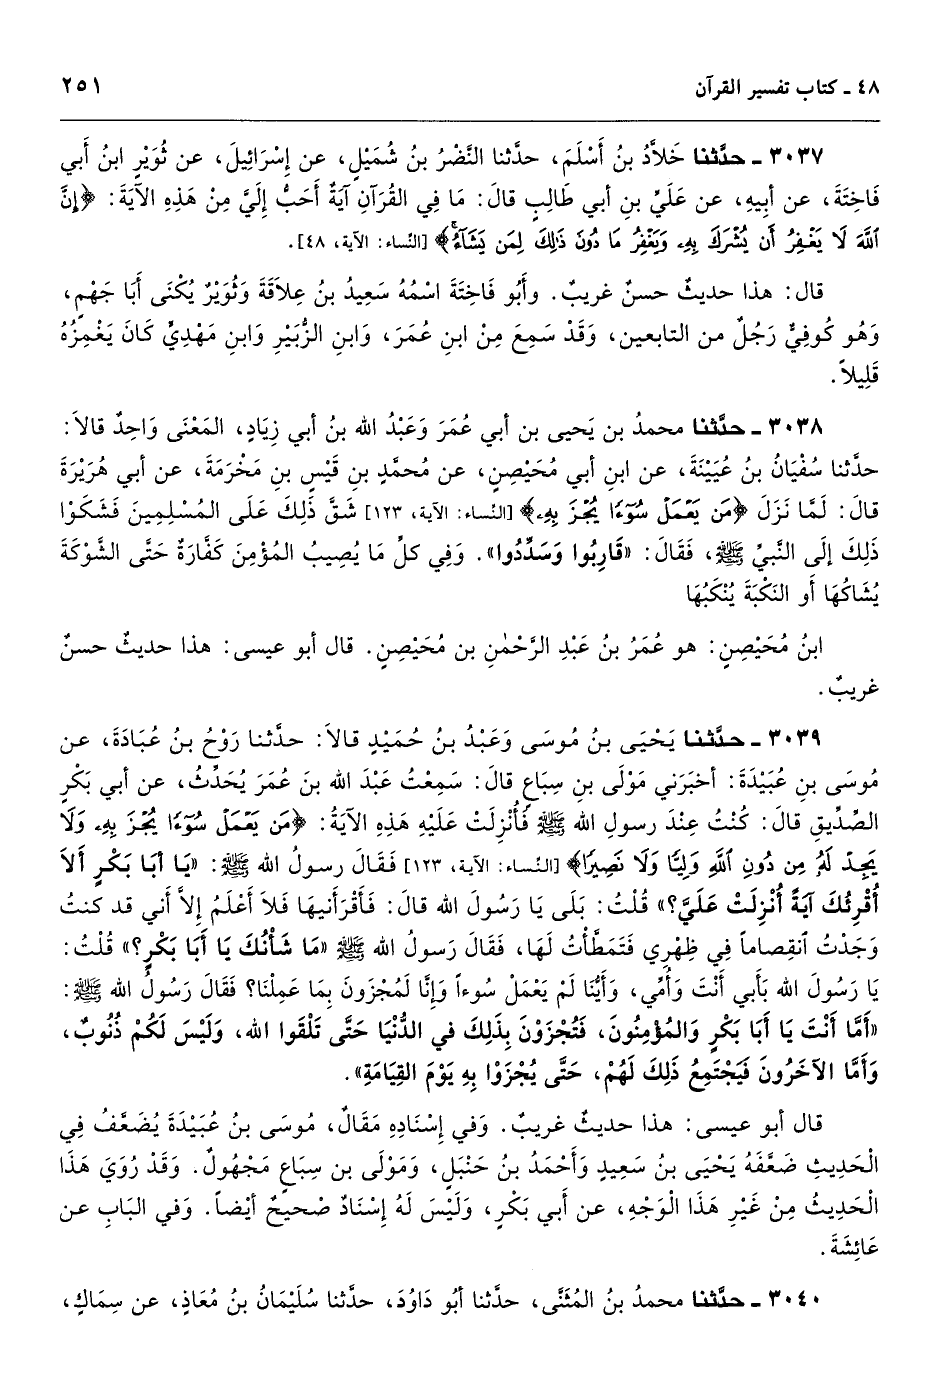 ٤٨ ـ كتاب تفسير القرآن ٢٥١
٣٠٣٧ ـ حدَّثنا خَلاَّدُ بنُ أَسْلَمَ، حدَّثنا النَّضْرُ بنُ شُمَيْلٍ، عن إِسْرَائِيلَ، عن ثُوَيْرٍ ابنُ أَبي
فَاخِتَةَ، عن أبِيهِ، عن عَلَيِّ بنِ أبي طَالِبٍ قالَ: مَا فِي القُرَآنِ آيَةٌ أَحَبُّ إلَيَّ مِنْ هَذِهِ الآيَةَ: ﴿إِنَّ
ٱللَّهَ لَا يَغْفِرُ أَن يُشْرَكَ بِهِۦ وَيَغْفِرُ مَا دُونَ ذَٰلِكَ لِمَن يَشَآءُۚ﴾ [النِّساء: الآية، ٤٨].
قال: هذا حديثٌ حسنٌ غريبٌ. وأَبُو فَاخِتَةَ اسْمُهُ سَعِيدُ بنُ عِلاَقَةَ وَثُوَيْرٌ يُكْنَى أبَا جَهْمٍ،
وَهُو كُوفِيٌّ رَجُلٌ من التابعين، وَقَدْ سَمِعَ مِنْ ابنِ عُمَرَ، وَابنِ الزُّبَيْرِ وَابنِ مَهْدِيِّ كَانَ يَغْمِزُهُ
قَلِيلاً.
٣٠٣٨ ـ حدَّثنا محمدُ بن يَحيى بن أبي عُمَرَ وَعَبْدُ الله بنُ أبي زِيَادٍ، المَعْنَى وَاحِدٌ قالاَ:
حدَّثنا سُفْيَانُ بنُ عُيَيْنَةَ، عن ابنِ أبي مُحَيْصِنٍ، عن مُحمَّدِ بنِ قَيْسِ بنِ مَخْرَمَةَ، عن أبي هُرَيْرَةَ
قالَ: لَمَّا نَزَلَ ﴿مَن يَعْمَلْ سُوٓءًا يُجْزَ بِهِۦ﴾ [النِّساء: الآية، ١٢٣] شَقَّ ذَلِكَ عَلَى المُسْلِمِينَ فَشَكَوْا
ذَلِكَ إلَى النَّبيِّ ﷺ، فَقَالَ: «قَارِبُوا وَسَدِّدُوا». وَفِي كلِّ مَا يُصِيبُ المُؤْمِنَ كَفَّارَةٌ حَتَّى الشَّوْكَةَ
يُشَاكُهَا أَو النَكْبَةَ يُنْكَبُهَا
ابنُ مُحَيْصِنٍ: هو عُمَرُ بنُ عَبْدِ الرَّحْمٰنِ بن مُحَيْصِنٍ. قال أبو عيسى: هذا حديثٌ حسنٌ
غريبٌ.
٣٠٣٩ ـ حدَّثنا يَحْيَى بنُ مُوسَى وَعَبْدُ بنُ حُمَيْدٍ قالاَ: حدَّثنا رَوْحُ بنُ عُبَادَةَ، عن
مُوسَى بنِ عُبَيْدَةَ: أخبَرَني مَوْلَى بنِ سِبَاعٍ قالَ: سَمِعْتُ عَبْدَ الله بنَ عُمَرَ يُحَدِّثُ، عن أبي بَكْرٍ
الصِّدِّيقِ قالَ: كُنْتُ عِنْدَ رسولِ الله ﷺ فَأُنْزِلَتْ عَلَيْهِ هَذِهِ الآيَةُ: ﴿مَن يَعْمَلْ سُوٓءًا يُجْزَ بِهِۦ وَلَا
يَجِدْ لَهُۥ مِن دُونِ ٱللَّهِ وَلِيًّا وَلَا نَصِيرًا﴾ [النِّساء: الآية، ١٢٣] فَقَالَ رسولُ الله ﷺ: «يَا أَبَا بَكْرٍ أَلاَ
أُقْرِئُكَ آيَةً أُنْزِلَتْ عَلَيَّ؟» قُلْتُ: بَلَى يَا رَسُولَ الله قالَ: فَأَقْرَأَنِيهَا فَلاَ أَعْلَمُ إلاَّ أَني قد كنتُ
وَجَدْتُ ٱنقِصاماً فِي ظِهْرِي فَتَمَطَّأْتُ لَهَا، فَقَالَ رَسولُ الله ﷺ «مَا شَأْنُكَ يَا أَبَا بَكْرٍ؟» قُلْتُ:
يَا رَسُولَ الله بَأبي أَنْتَ وَأُمِّي، وَأَيُّنَا لَمْ يَعْمَلْ سُوءاً وَإِنَّا لَمُجْزَونَ بِمَا عَمِلْنَا؟ فَقَالَ رَسُولُ الله ﷺ:
«أَمَّا أَنْتَ يَا أَبَا بَكْرٍ وَالمُؤْمِنُونَ، فَتُجْزَوْنَ بِذَلِكَ في الدُّنْيَا حَتَّى تَلْقَوا الله، وَلَيْسَ لَكُمْ ذُنُوبٌ،
وَأَمَّا الآخَرُونَ فَيَجْتَمِعُ ذَلِكَ لَهُمْ، حَتَّى يُجْزَوْا بِهِ يَوْمَ القِيَامَةِ».
قال أبو عيسى: هذا حديثٌ غريبٌ. وَفي إسْنَادِهِ مَقَالٌ، مُوسَى بنُ عُبَيْدَةَ يُضَعَّفُ فِي
الْحَدِيثِ ضَعَّفَهُ يَحْيَى بنُ سَعِيدٍ وَأَحْمَدُ بنُ حَنْبَلٍ، وَمَوْلَى بن سِبَاعٍ مَجْهُولٌ. وَقَدْ رُوَيَ هَذَا
الْحَدِيثُ مِنْ غَيْرِ هَذَا الْوَجْهِ، عن أَبي بَكْرٍ، وَلَيْسَ لَهُ إسْنَادٌ صْحيحٌ أيْضاً. وَفي البَابِ عن
عَائِشَةَ.
٣٠٤٠ ـ حدَّثنا محمدُ بنُ المُثَنَّى، حدَّثنا أبُو دَاوُدَ، حدَّثنا سُلَيْمَانُ بنُ مُعَاذٍ، عن سِمَاكٍ،